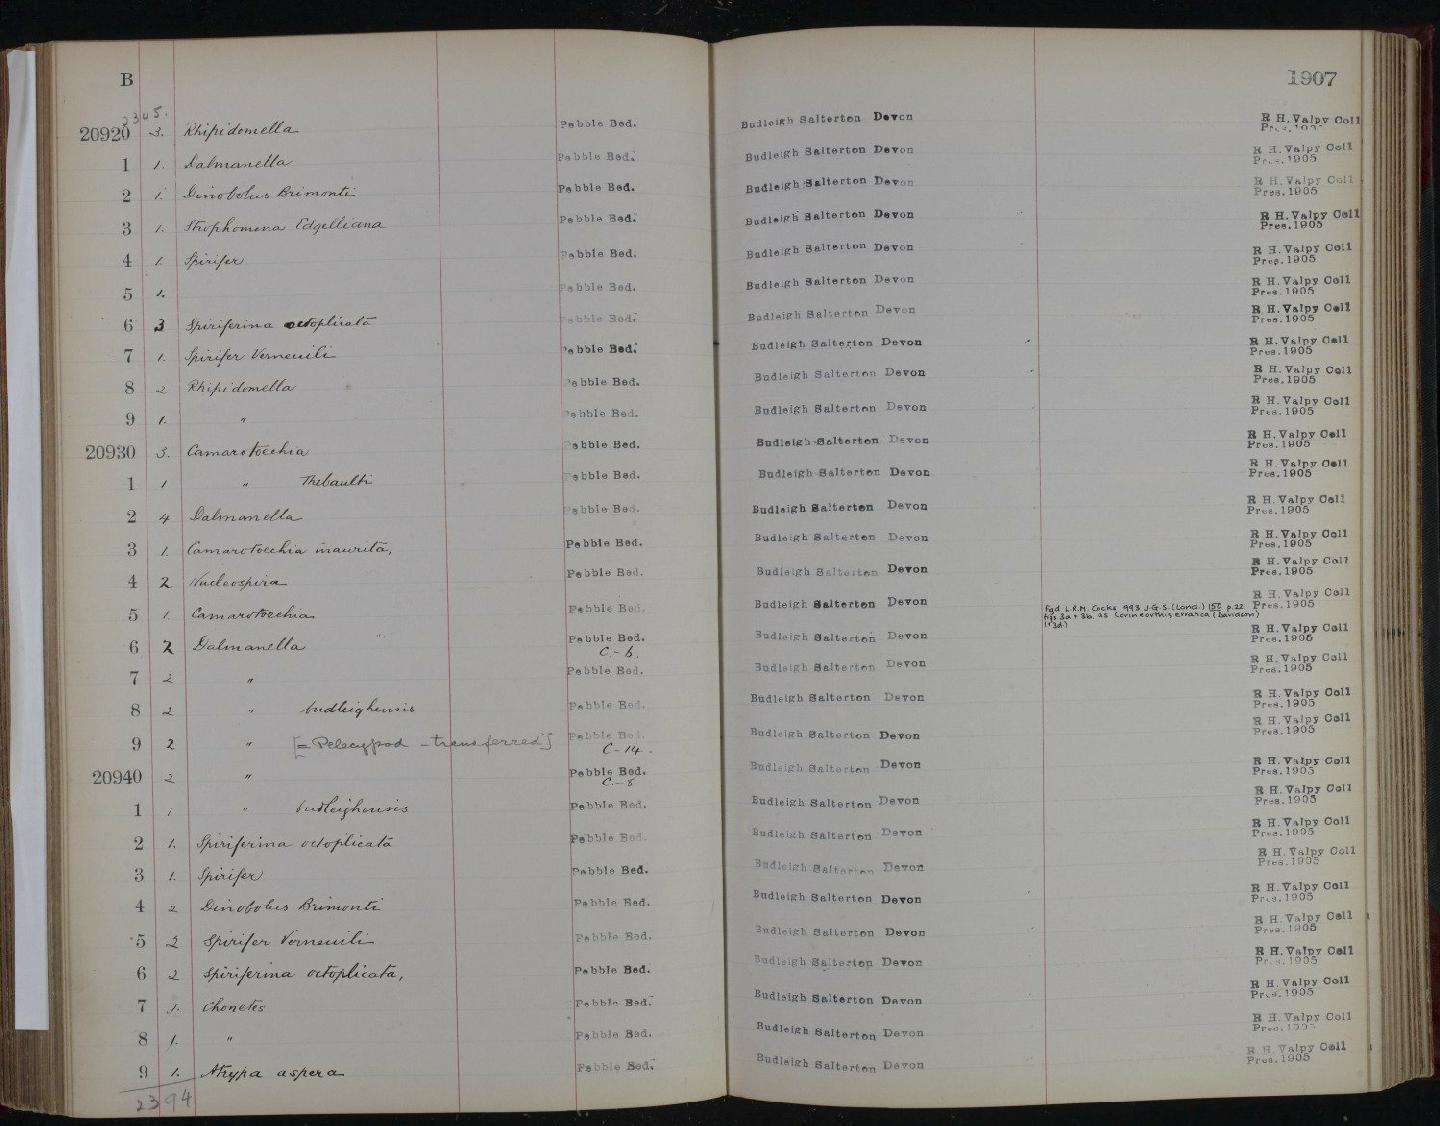 B 1907
2345.
20920 3. Rhipidomella Pebble Bed. Budleigh Salterton Devon R H. Valpy Coll
Pres. 1905
1 1. Dalmanella Pebble Bed. Budleigh Salterton Devon R H. Valpy Coll
Pres. 1905
2 1. Dinobolus Brimonti Pebble Bed. Budleigh Salterton Devon R H. Valpy Coll
Pres. 1905
3 1. Strophomena Edgelliana Pebble Bed. Budleigh Salterton Devon R H. Valpy Coll
Pres. 1905
4 1. Spirifer Pebble Bed. Budleigh Salterton Devon R H. Valpy Coll
Pres. 1905
5 1. Pebble Bed. Budleigh Salterton Devon R H. Valpy Coll
Pres. 1905
6 3 Spiriferina octoplicata Pebble Bed. Budleigh Salterton Devon R H. Valpy Coll
Pres. 1905
7 1. Spirifer Verneuili Pebble Bed. Budleigh Salterton Devon R H. Valpy Coll
Pres. 1905
8 2 Rhipidomella Pebble Bed. Budleigh Salterton Devon R H. Valpy Coll
Pres. 1905
9 1. " Pebble Bed. Budleigh Salterton Devon R H. Valpy Coll
Pres. 1905
20930 3. Camarotoechia Pebble Bed. Budleigh Salterton Devon R H. Valpy Coll
Pres. 1905
1 1 " Thebaulti Pebble Bed. Budleigh Salterton Devon R H. Valpy Coll
Pres. 1905
2 4 Dalmanella Pebble Bed. Budleigh Salterton Devon R H. Valpy Coll
Pres. 1905
3 1. Camarotoechia inaurita, Pebble Bed. Budleigh Salterton Devon R H. Valpy Coll
Pres. 1905
4 2 Nucleospira Pebble Bed. Budleigh Salterton Devon R H. Valpy Coll
Pres. 1905
5 1. Camarotoechia Pebble Bed. Budleigh Salterton Devon Fgd L.R.M. Cocks 993 J.G.S. (Lond.) 150 p.22 R H. Valpy Coll
figs 3a + 3b. as Corineorthis erratica (Davidson) Pres. 1905
(+3d)
6 2 Dalmanella Pebble Bed. Budleigh Salterton Devon R H. Valpy Coll
C-6. Pres. 1905
7 2 " Pebble Bed. Budleigh Salterton Devon R H. Valpy Coll
Pres. 1905
8 2 " budleighensis Pebble Bed. Budleigh Salterton Devon R H. Valpy Coll
Pres. 1905
9 2 " [= Pelecypod - transferred] Pebble Bed. Budleigh Salterton Devon R H. Valpy Coll
C-14. Pres. 1905
20940 2 " Pebble Bed. Budleigh Salterton Devon R H. Valpy Coll
C-8 Pres. 1905
1 1 " budleighensis Pebble Bed. Budleigh Salterton Devon R H. Valpy Coll
Pres. 1905
2 1. Spiriferina octoplicata Pebble Bed. Budleigh Salterton Devon R H. Valpy Coll
Pres. 1905
3 1. Spirifer Pebble Bed. Budleigh Salterton Devon R H. Valpy Coll
Pres. 1905
4 2 Dinobolus Brimonti Pebble Bed. Budleigh Salterton Devon R H. Valpy Coll
Pres. 1905
5 2 Spirifer Verneuili Pebble Bed. Budleigh Salterton Devon R H. Valpy Coll
Pres. 1905
6 2 Spiriferina octoplicata, Pebble Bed. Budleigh Salterton Devon R H. Valpy Coll
Pres. 1905
7 1. Chonetes Pebble Bed. Budleigh Salterton Devon R H. Valpy Coll
Pres. 1905
8 1. " Pebble Bed. Budleigh Salterton Devon R H. Valpy Coll
Pres. 1905
9 1. Atrypa aspera Pebble Bed. Budleigh Salterton Devon R H. Valpy Coll
Pres. 1905
2394